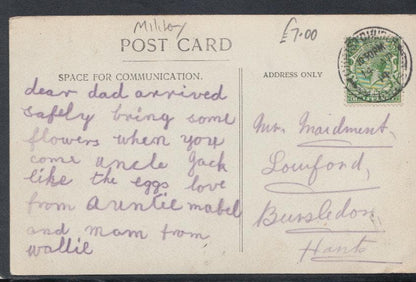 Military
£7.00
POST CARD
SPACE FOR COMMUNICATION.
ADDRESS ONLY
dear dad arrived
safely bring some
flowers when you
come uncle Jack
like the eggs love
from auntie mabel
and mam from
wallie
Mr. Maidment,
Lowford,
Bursledon,
Hants